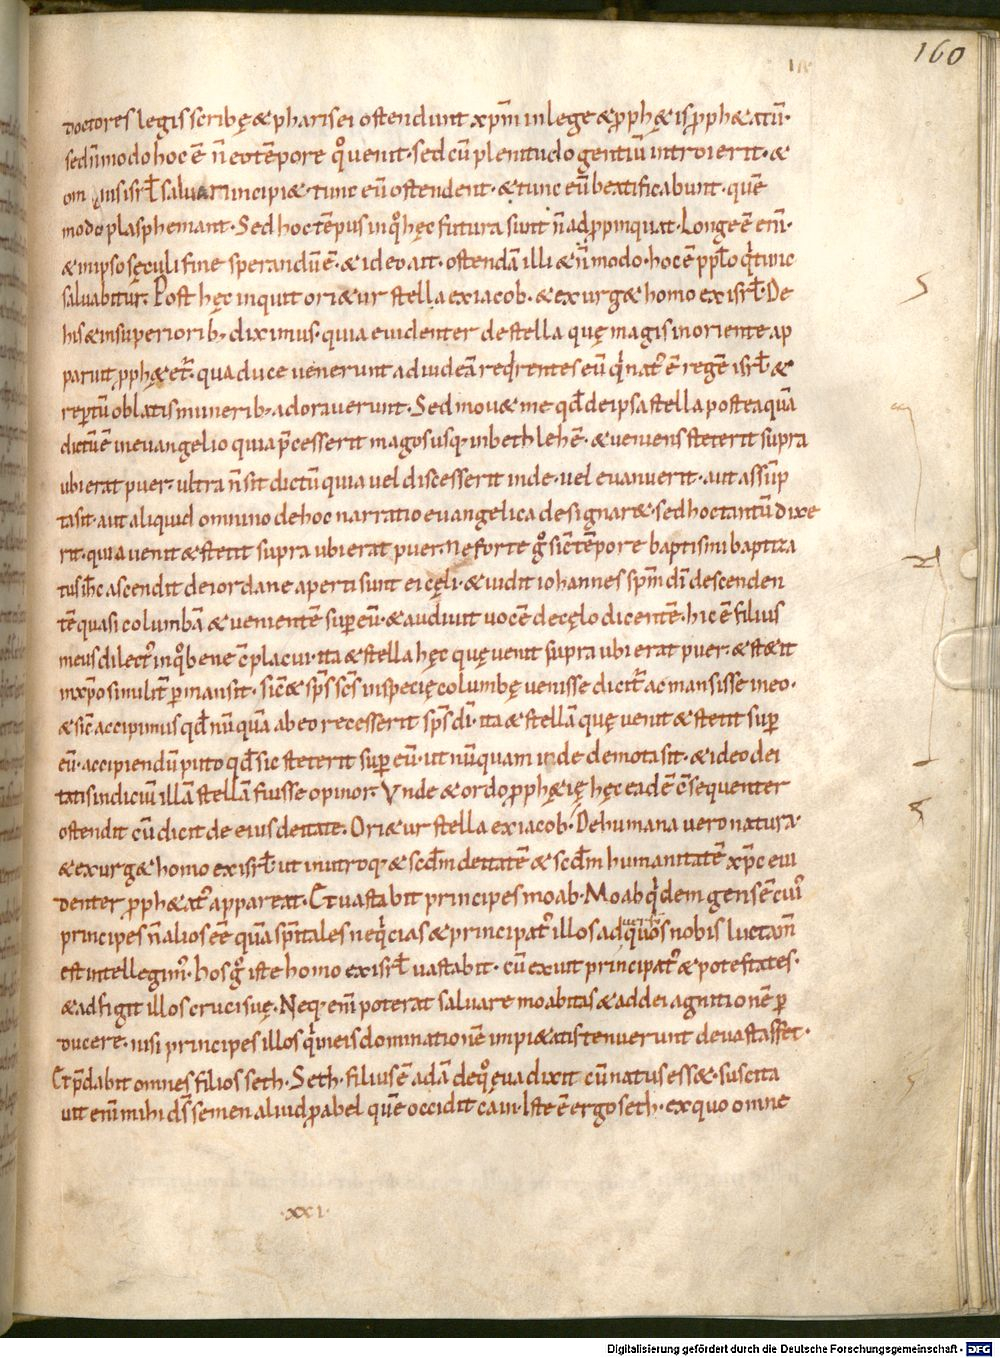 160
doctores legis scribę & pharisei ostendunt xp̄m in lege & p̄ph&is p̄ph&atū·
sed n̄ modo hoc ē n̄ eo tēpore q̊ uenit· sed cū plenitudo gentiū introierit· &
om nis isrł salua ri incipi&· tunc eū ostendent· & tunc eū beatificabunt· quē
modo plasphemant· Sed hoc tēpus in q̊ hęc futura sunt n̄ adp̄pinquat· Longe ē eni̅·
& in ipso sęculi fine sperandū ē· & ideo ait· ostendā illi & n̄ modo· hoc ē pp̄lo qͥ tunc
saluabitur· Post hęc inquit ori&ur stella ex iacob· & exurg& homo ex isrł· De
his & in superiorib; diximus· quia euidenter de stella quę magis in oriente ap
paruit p̄ph&et᷑· qua duce uenerunt ad iudeā reqͥrentes eū qͥ nat᷒ ē regē isrł &
rep̄tū oblatis munerib; adorauerunt· Sed mou& me qđ de ipsa stella postea quā
dictū ē in euangelio quia p̄cesserit magos usq; in bethlehē· & ueniens steterit supra
ubi erat puer· ultra n̄ sit dictū quia uel discesserit inde· uel euanuerit· aut assūp
ta sit· aut aliquid omnino de hoc narratio euangelica designar&· sed hoc tantū dixe
rit· quia uenit & stetit supra ubi erat puer· Ne forte g̊ sic̄ tēpore baptismi baptiza
tus ih̄c ascendit de iordane aperti sunt ei cęli· & uidit iohannes sp̄m dī descenden
tē quasi columbā & uenientē sup eū· & audiuit uocē de cęlo dicentē· hic ē filius
meus dilect᷒ in q̊ bene c̄placui· ita & stella hęc quę uenit supra ubi erat puer· & st&it
in xp̄o similit̄ p̄mansit· sic̄ & sp̄s sc̄s in specię columbę uenisse dicit᷑ ac mansisse in eo·
& sic̄ accipimus qđ nū quā ab eo recesserit sp̄s dī· ita & stellā quę uenit & stetit sup̄
eū· accipiendū puto qđ sic steterit sup̄ eū· ut nū quam inde demota sit· & ideo dei
tatis indiciū illā stellā fuisse opinor· Vnde & ordo p̄ph&ię hęc eadē c̄sequenter
ostendit cū dicit de eius deitate· Ori&ur stella ex iacob· De humana uero natura·
& exurg& homo ex isrł· ut in utroq; & scđm deitatē & scđm humanitatē xp̄c eui
denter p̄ph&at᷒ appareat· Et uastabit principes moab· Moab qͥdem gens ē cui᷒
principes n̄ alios eē quā sp̄itales neqͥcias & principat᷒ illos aduersū quos nobis luctam̄
est intellegim᷒· hos g̊ iste homo ex isrł uastabit· cū exuit principat᷒ & potestates·
& adfigit illos cruci suę· Neq; em̄ poterat saluare moabitas & ad dei agnitionē p̄
ducere· nisi principes illos qͥ in eis dominationē impi&atis tenuerunt deuastass&·
Et p̄dabit omnes filios seth· Seth· filius ē adā de q̊ eua dixit cū natus ess&· suscita
uit em̄ mihi ds̄ semen aliud p̄ abel quē occidit cain· Iste ē ergo seth· ex quo omne
·xxi·
Digitalisierung gefördert durch die Deutsche Forschungsgemeinschaft - DFG